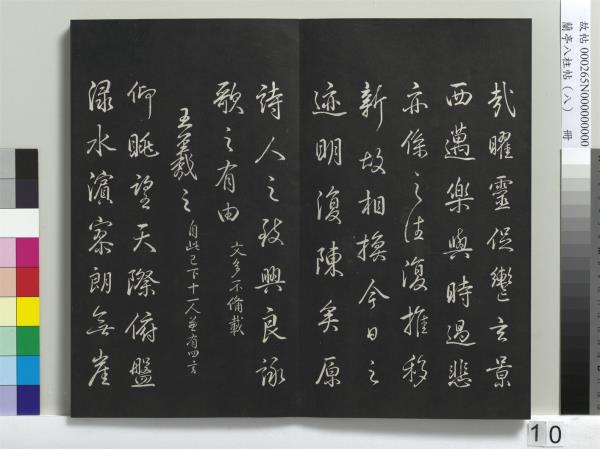 哉曜靈促轡玄景
西邁樂與時過悲
亦係之往復推移
新故相換今日之
迹明復陳矣原
詩人之致興良詠
歌之有由
文多不備載
王羲之
自此已下十一人並有四言
仰眺望天際俯盤
淥水濱寥朗無崖
故帖 000265N000000000
蘭亭八柱帖（八） 冊
10